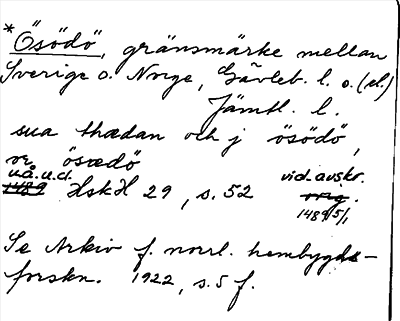 *Ösödö, gränsmärke mellan
Sverige o. Norge, Gävleb. l. o. (el.)
Jämtl. l.
sua thædan och j ösödö,
vr ösædö
u.å.u.d. vid.avskr.
1489 HskH 29, s. 52 orig.
1489 15/1
Se Arkiv f. norrl. hembygds-
forskn. 1922, s. 5 f.